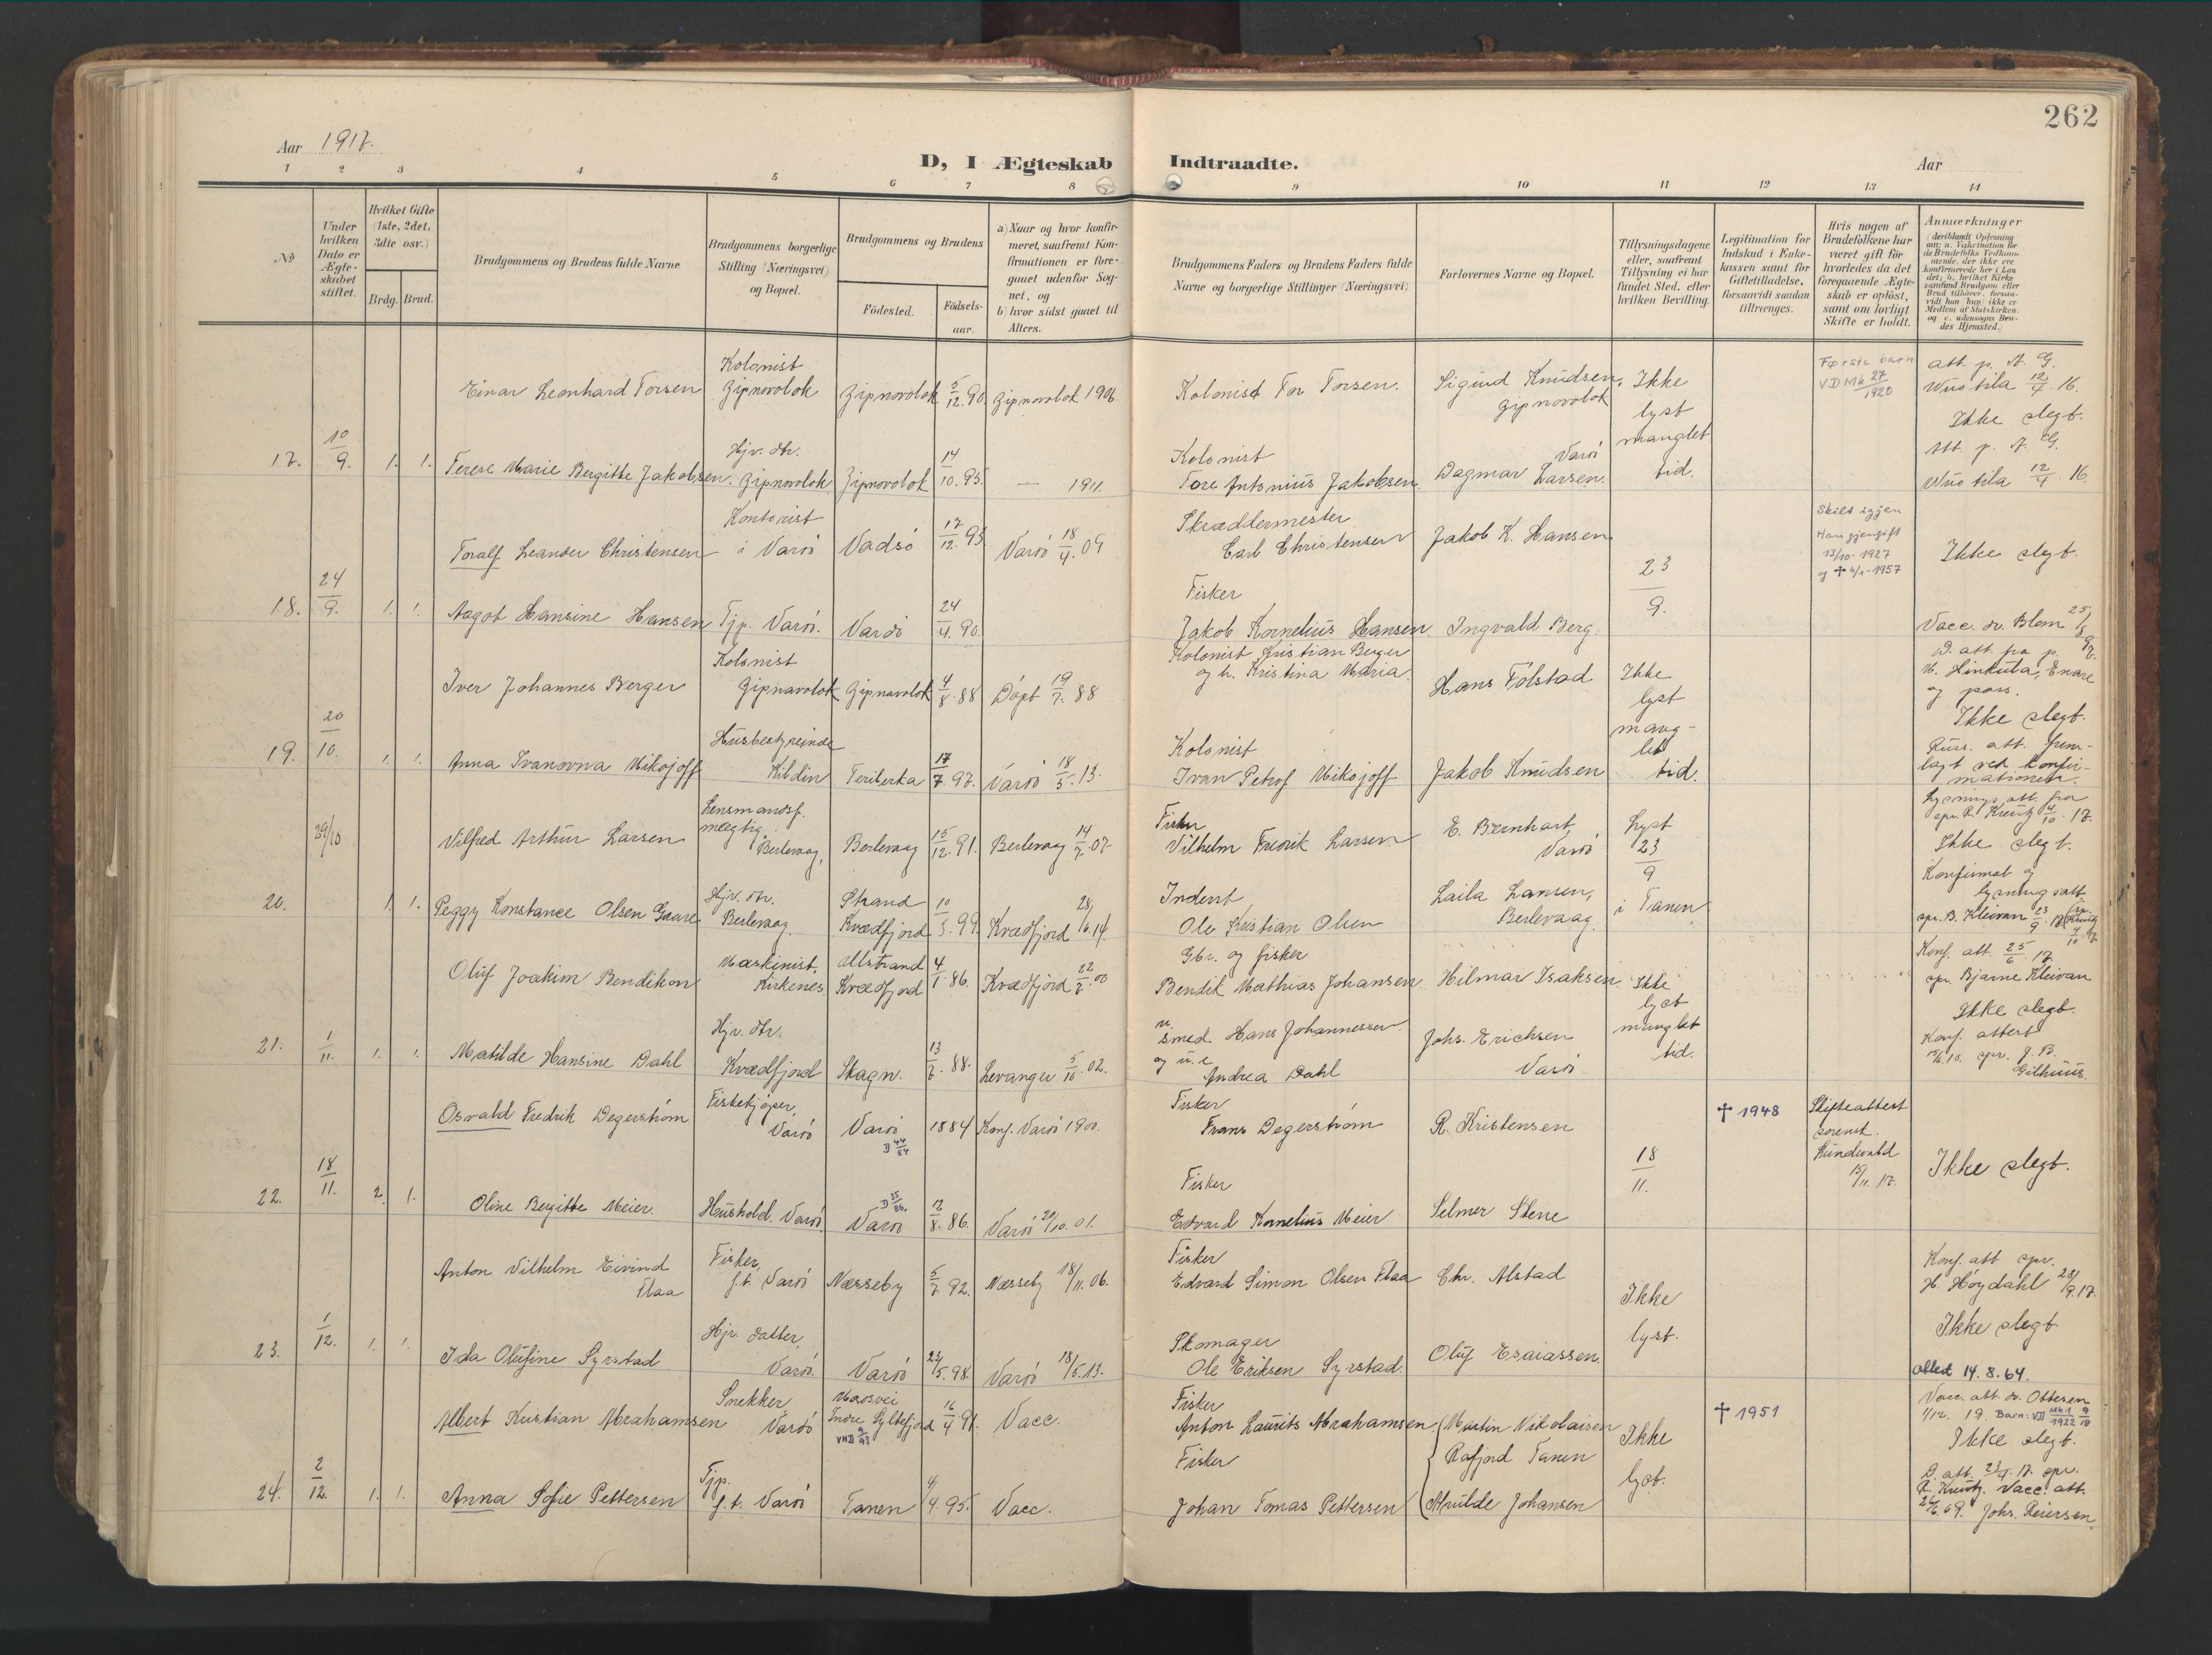 262
Aar 1917.
D, I Ægteskab Indtraadte.
Aar
1 2 3 4 5 6 7 8 9 10 11 12 13 14
No
Under hvilken Dato er Ægteskabet stiftet.
Hvilket Gifte (1ste, 2det, 3die osv.)
Brdg. Brud.
Brudgommens og Brudens fulde Navne
Brudgommens borgerlige Stilling (Næringsvei) og Bopæl.
Brudgommens og Brudens
Födested.
Födsels-aar.
a) Naar og hvor konfirmeret, saafremt Konfirmationen er foregaaet udenfor Sognet, og
b) hvor sidst gaaet til Alters.
Brudgommens Faders og Brudens Faders fulde Navne og borgerlige Stillinger (Næringsvei)
Forlovernes Navne og Bopæl.
Tillysningsdagene eller, saafremt Tillysning ei har fundet Sted, efter hvilken Bevilling.
Legitimation for Indskud i Enkekassen samt for Giftetilladelse, forsaavidt saadan tiltrænges.
Hvis nogen af Brudefolkene har været gift för hvorledes da det foregaaende Ægteskab er oplöst, samt om lovligt Skifte er holdt.
Anmærkninger
Einar Leonhard Torsen Kolonist Zipnovolok Zipnovolok 5/12.90. Zipnovolok 1906 Kolonist Tor Torsen. Sigurd Knudsen, Zipnovolok Ikke lyst manglet tid. Første barn VD Mk 27/1920 att. p. A. G. Wuotila 12/4.16. Ikke slegt.
17. 10/9. 1. 1. Terese Marie Bergitte Jakobsen. Hjv. dtr. Zipnovolok Zipnovolok 14/10.95. — 1911. Kolonist Tore Antonius Jakobsen. Dagmar Larsen. Varö Att. p. A. G. Wuotila 12/4.16.
Toralf Leander Christensen Kontorist i Varö Vadsö 17/12.93 Varö 18/4.09 Skræddermester Carl Christensen Jakob K. Hansen 23/9. Skilt igjen Han gjengift 15/10-1927 Ikke slegt.
18. 24/9. 1. 1. Aagot Hansine Hansen Tjp. Varö. Vardö 24/4.90. Fisker Jakob Kornelius Hansen. Ingvald Berg. Vacc. dr. Blom
Iver Johannes Berger Kolonist Zipnavolok Zipnavolok 4/8.88 Döpt 19/7.88 Kolonist Kristian Berger og h. Kristina Maria. Hans Fölstad Ikke lyst manglet tid. D. att. fra p. Hinkula, Enare og pass. Ikke slegt.
19. 20/10. 1. 1. Anna Ivanovna Mikojoff Husbestyrerinde Kildin Teriberka 17/7.97. Varö 18/5.13. Kolonist Ivan Petrof Mikojoff Jakob Knudsen Russ. att. fremlagt ved konfirmationen.
29/10 Vilfred Arthur Larsen Lensmandsf.mægtig, Berlevaag, Berlevaag 15/12.91. Berlevaag 14/7.07. Fisker Vilhelm Fredrik Larsen E. Bernhart Varö Lyst 23/9 i Tanen Lysnings att. fra spr. R. Kreutz 4/10.17. Ikke slegt.
20. 1. 1. Peggy Konstance Olsen Gaare Hjv. dtr. Berlevaag. Strand Kvædfjord 10/5.99 Kvædfjord 28/6.14. Indent Ole Kristian Olsen Laila Larsen, Berlevaag. Konfirmat. og lysningsatt. spr. B. Kleivan 23/9.17
Oluf Joakim Bendikson Maskinist, Kirkenes. Kvædfjord 4/1.86. Kvædfjord 22/7.00 Gbr. og fisker Bendik Mathias Johansen Hilmar Isaksen. Ikke lyst manglet tid. Konf. att. 25/6 17 spr. Bjarne Kleivan Ikke slegt.
21. 1/11. 1. 1. Matilde Hansine Dahl Hjv. dtr. Kvædfjord Skogn. 13/6.88. Levanger 5/10.02. Smed. Hans Johannessen og u. e. Andrea Dahl Johs. Erichsen Varö Konf. attest spr. J. B. Gilhuus.
Osvald Fredrik Degerström Fiskekjöper, Varö Varö D 44/84 1884 Konf. Varö 1900. Fisker Frans Degerström R. Kristensen 18/11. † 1948 Skifteattest sorensk. Lindvald 15/11.17. Ikke slegt.
22. 18/11. 2. 1. Oline Bergitte Meier. Hushold. Varö. D 35/86. Varö 12/8.86. Varö 20/10.01. Fisker Edvard Kornelius Meier Selmer Stene
Anton Vilhelm Eivind Flaa Fisker, f.t. Varö Næsseby 5/7.92. Næsseby 18/11.06. Fisker Edvard Simon Olsen Flaa Chr. Alstad Ikke lyst. Konf. att. spr. H. Höydahl 28/9.17. Ikke slegt.
23. 1/12. 1. 1. Ida Olufine Syrstad Hjv. datter, Varö. Varö 23/5.98. Varö 18/5.13. Skomager Ole Eriksen Syrstad. Oluf Esaiassen. attest 14.8.64.
Albert Kristian Abrahamsen Snekker Varö Indre Syltefjord 16/4 91. Vacc. Fisker Anton Laurits Abrahamsen. Martin Nikolaisen Rafjord Tanen Ikke lyst. † 1951 Vacc. att. dr. Ottesen 1/12. 19. Barn: VD Mk 1/1922 Ikke slegt.
24. 2/12. 1. 1. Anna Sofie Pettersen Tjp. f.t. Varö Tanen 4/4.95. Vacc. Fisker Johan Tomas Pettersen Johansen D. att. 23/4.17. spr. R. Kreutz. Vacc. att. Johs. Reiersen.